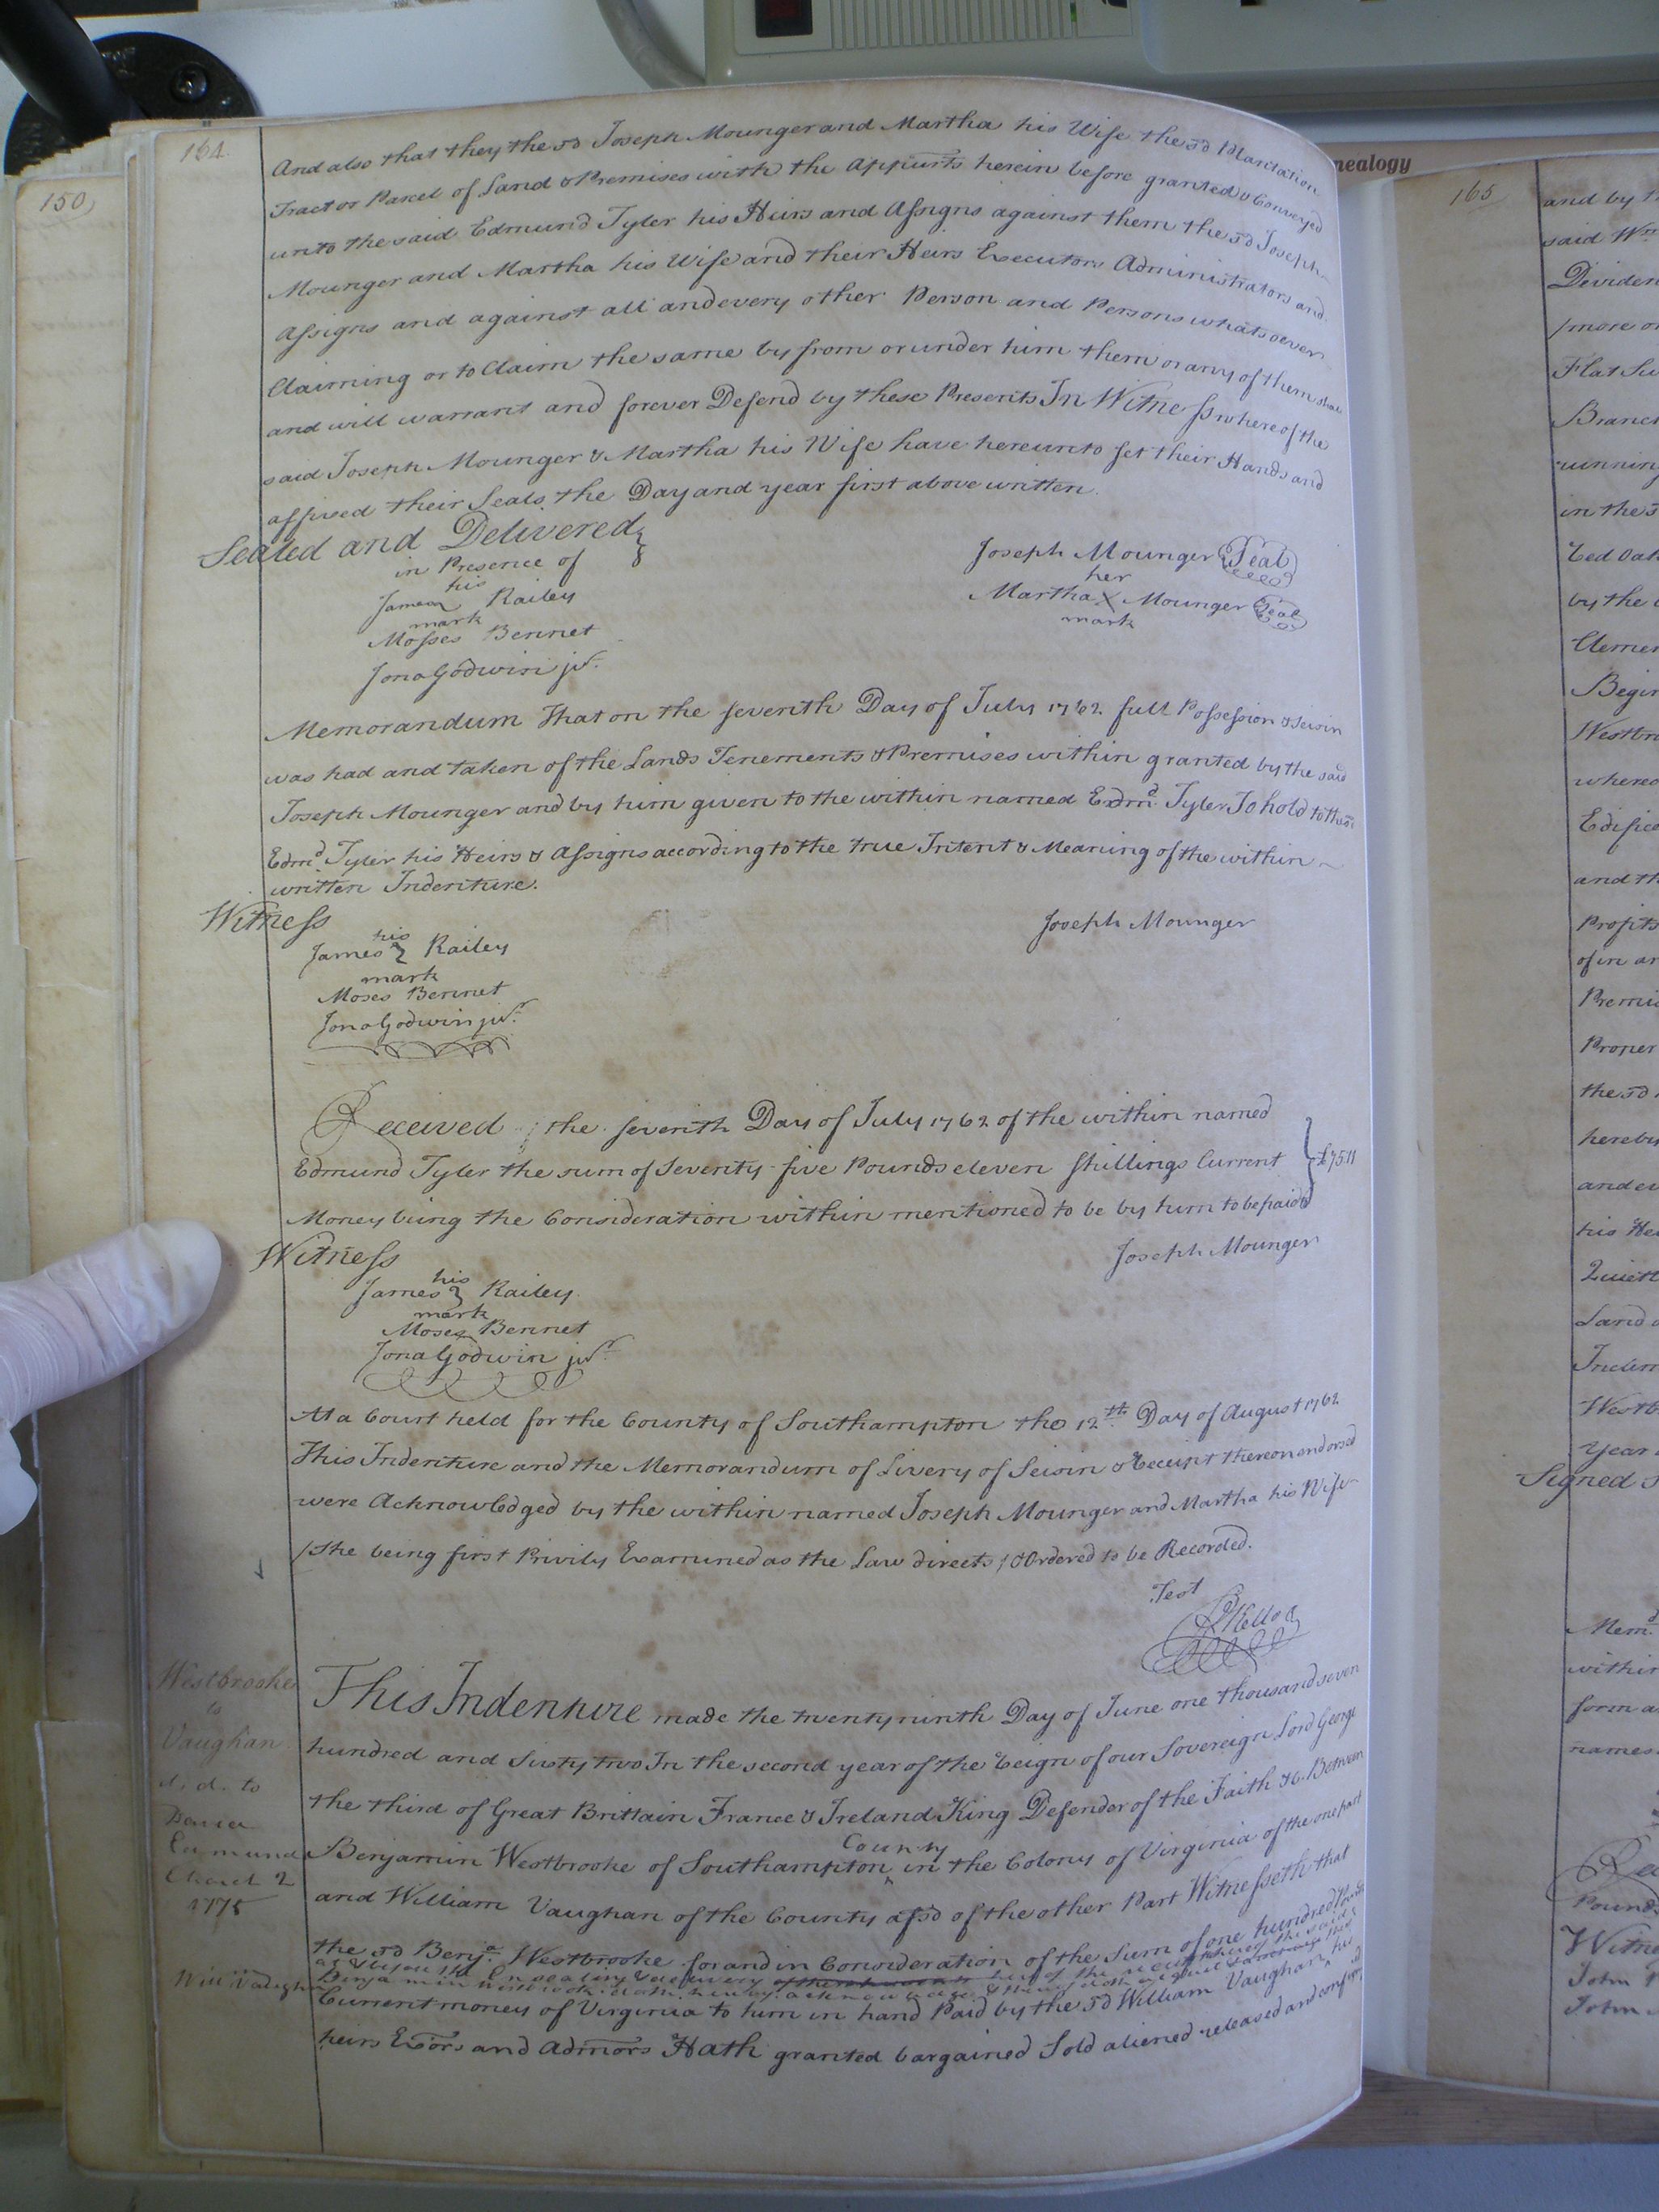 150
164.
And also that they the sd Joseph Mounger and Martha his Wife the sd Plantation
Tract or Parcel of Land & Premises with the Appurts herein before granted & Conveyed
unto the said Edmund Tyler his Heirs and Assigns against them the sd Joseph
Mounger and Martha his Wife and their Heirs Executors Administrators and
Assigns and against all and every other Person and Persons whatsoever
Claiming or to Claim the same by from or under him them or any of them shall
and will warrant and forever Defend by these Presents In Witness whereof the
said Joseph Mounger & Martha his Wife have hereunto set their Hands and
affixed their Seals the Day and year first above written.
Sealed and Delivered
in Presence of
his
James Railey
mark
Mosses Bennet
Jona Godwin jur.
Joseph Mounger Seal
her
Martha X Mounger Seal
mark
Memorandum That on the seventh Day of July 1762 full Possession & Seisin
was had and taken of the Lands Tenements & Premises within granted by the said
Joseph Mounger and by him given to the within named Edmd. Tyler To hold to the sd
Edmd Tyler his Heirs & Assigns according to the true Intent & Meaning of the within
written Indenture.
Witness
his
James Railey
mark
Moses Bennet
Jona Godwin jur.
Joseph Mounger
Received the seventh Day of July 1762 of the within named
Edmund Tyler the sum of Seventy five Pounds eleven Shillings Current
£75.11
Money being the Consideration within mentioned to be by him to be paid
Witness
his
James Railey
mark
Moses Bennet
Jona Godwin jur.
Joseph Mounger
At a Court held for the County of Southampton the 12th Day of August 1762
This Indenture and the Memorandum of Livery of Seisin & Receipt thereon endorsed
were Acknowledged by the within named Joseph Mounger and Martha his Wife
/She being first Privily Examined as the Law directs / & Ordered to be Recorded.
Test
R Kello
Westbrooke
to
Vaughan
d. d. to
1775
Will Vaughn
This Indenture made the twenty ninth Day of June one thousand seven
hundred and Sixty two In the second year of the Reign of our Sovereign Lord George
the third of Great Brittain France & Ireland King Defender of the Faith &c. Between
County
Benjamin Westbrooke of Southampton in the Colony of Virginia of the one part
and William Vaughan of the County afsd of the other Part Witnesseth that
the sd Benja. Westbrooke for and in Consideration of the Sum of one hundred
Current money of Virginia to him in hand Paid by the sd William Vaughan his
heirs Exors and Admors Hath granted bargained Sold aliened released and
nealogy
165
and by
said Wm
Dividen
/more or
Flat
Branch
running
in the
Red Oak
by the
Clemen
Begin
Westbr
whereo
Edifice
and th
Profits
of in an
Premis
Proper
the sd
hereby
and ev
his Hei
Quiet
Land
Inden
Westb
year
Signed
Memd.
within
form a
names
Re
Pounds
Witne
John
John